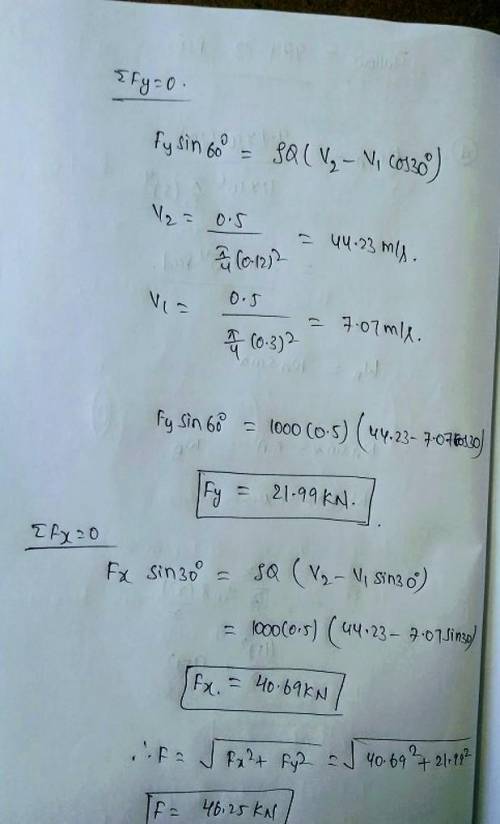 ΣFy=0.
Fy sin60° = ρQ ( V2 - V1 cos30°)
V2 = 0.5 / π/4 (0.12)² = 44.23 m/s.
V1 = 0.5 / π/4 (0.3)² = 7.07 m/s.
Fy sin60° = 1000 (0.5) ( 44.23 - 7.07 cos30)
Fy = 21.99 KN.
ΣFx=0
Fx sin30° = ρQ ( V2 - V1 sin30°)
= 1000(0.5) ( 44.23 - 7.07 sin30)
Fx. = 40.69 KN
∴ F = √Fx² + Fy² = √40.69² + 21.99²
F = 46.25 KN